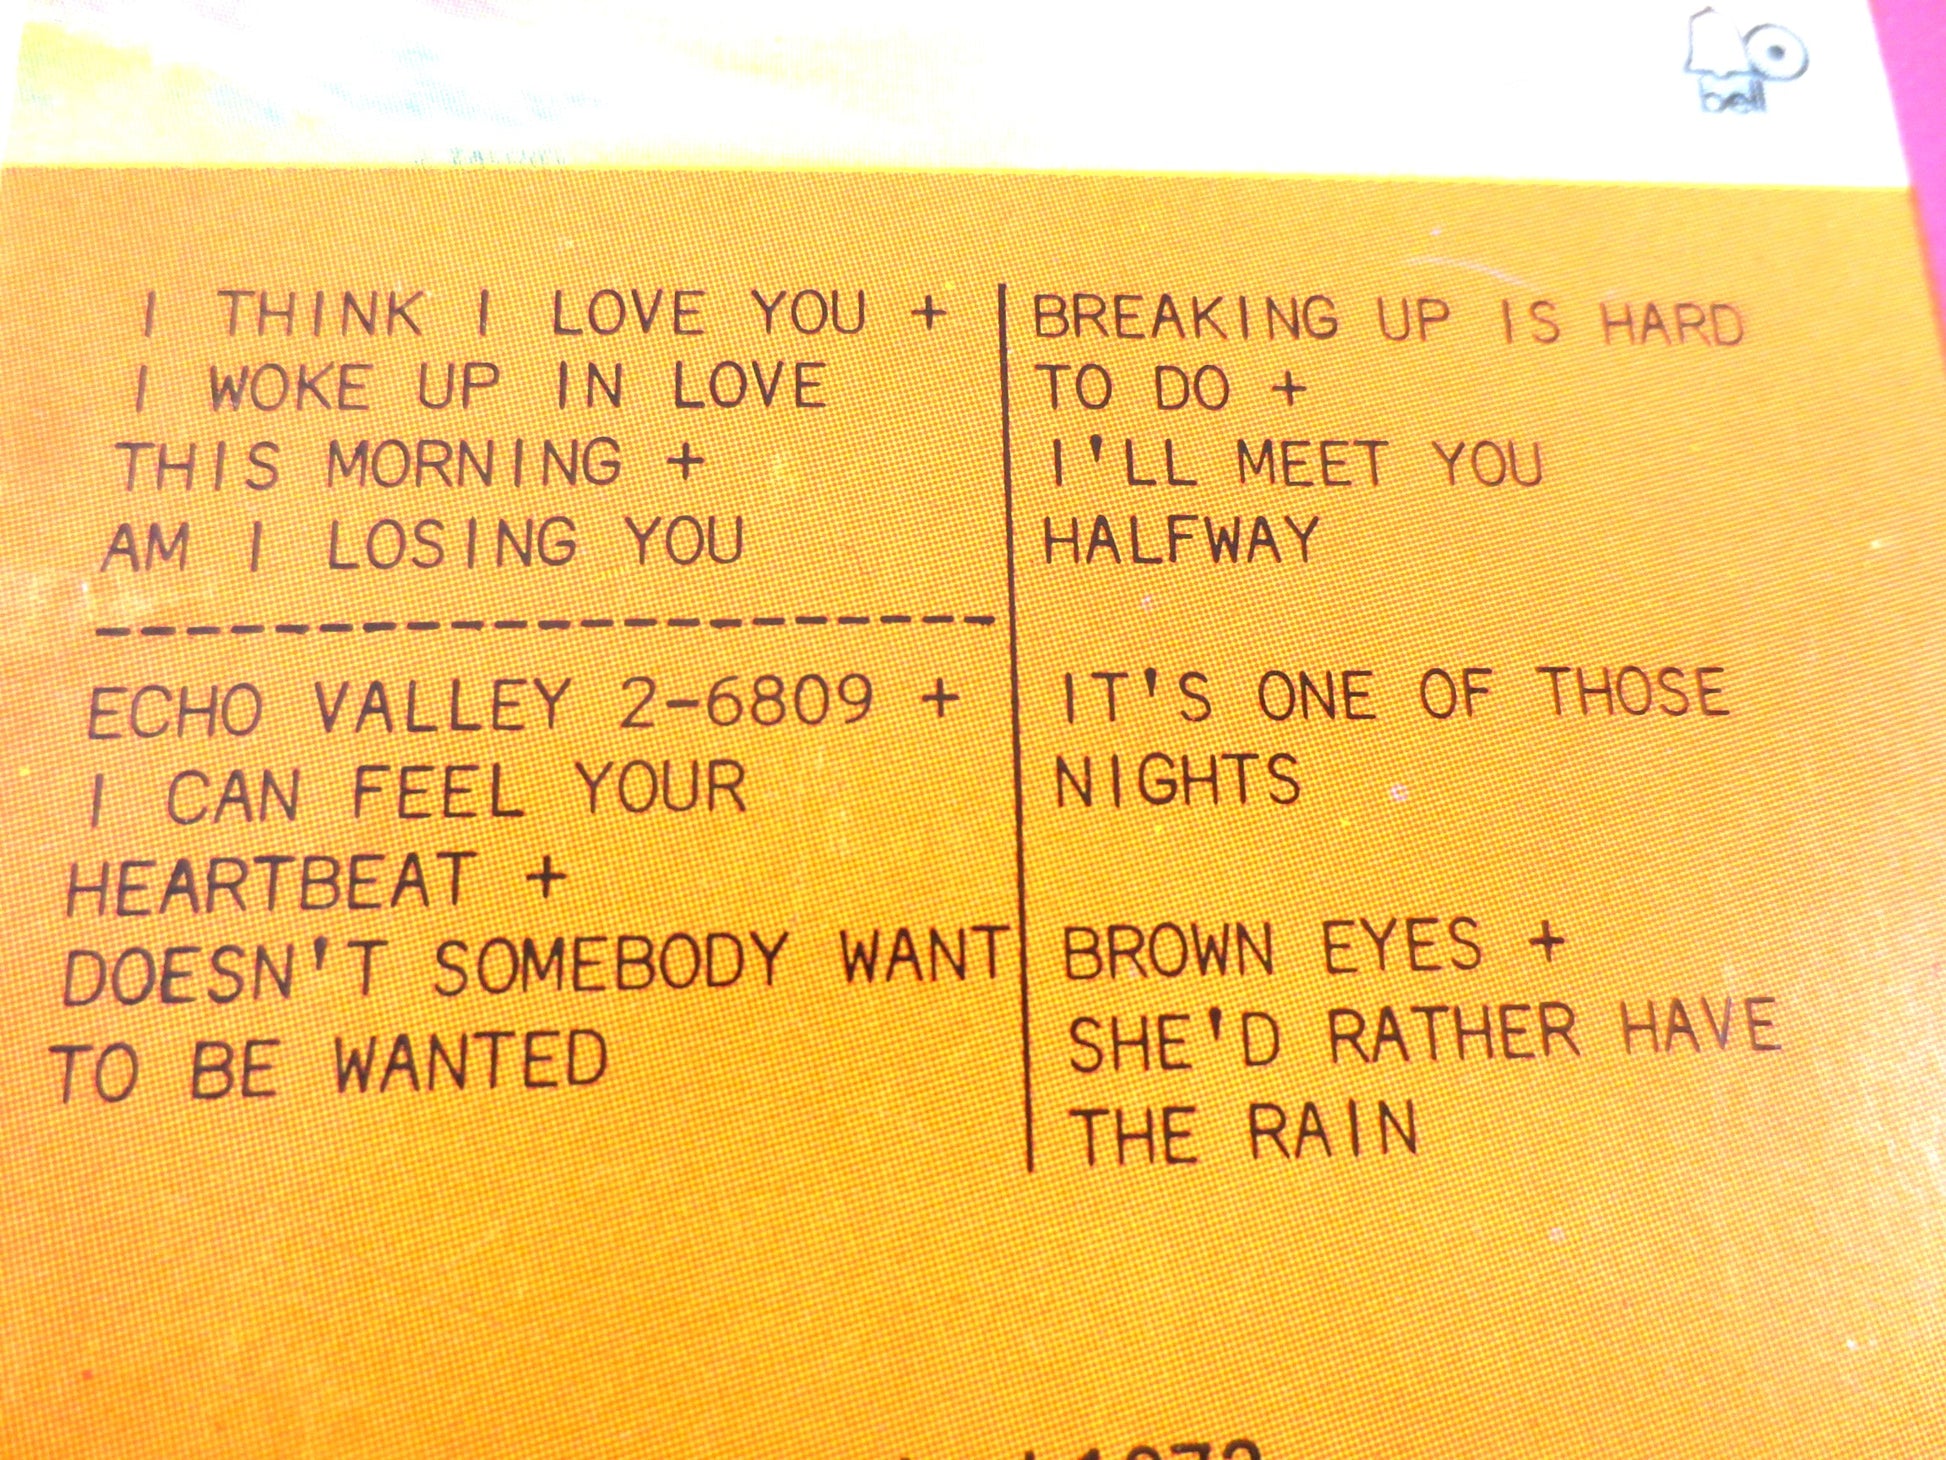 bell
I THINK I LOVE YOU +
I WOKE UP IN LOVE
THIS MORNING +
AM I LOSING YOU
ECHO VALLEY 2-6809 +
I CAN FEEL YOUR
HEARTBEAT +
DOESN'T SOMEBODY WANT
TO BE WANTED
BREAKING UP IS HARD
TO DO +
I'LL MEET YOU
HALFWAY
IT'S ONE OF THOSE
NIGHTS
BROWN EYES +
SHE'D RATHER HAVE
THE RAIN